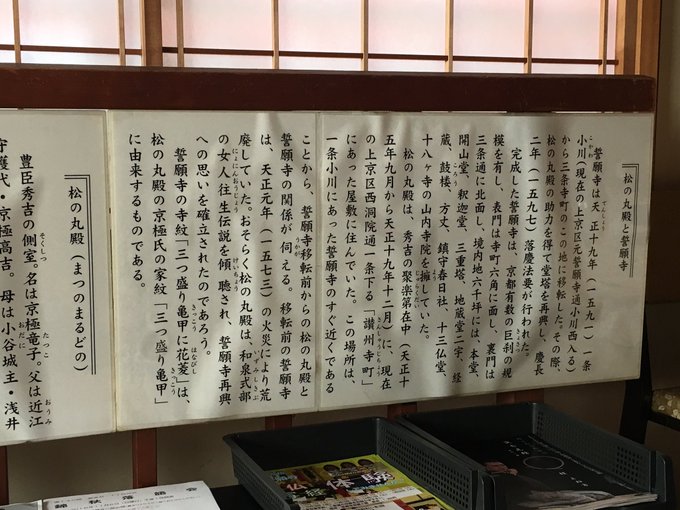 松の丸殿と誓願寺
誓願寺は天正十九年(一五九一)一条
小川(現在の上京区元誓願寺通小川西入る)
から三条寺町のこの地に移転した。その際、
松の丸殿の助力を得て堂塔を再興し、慶長
二年(一五九七)落慶法要が行われた。
完成した誓願寺は、京都有数の巨刹の規
模を有し、表門は寺町六角に面し、裏門は
三条通に北面し、境内地六千坪には、本堂、
開山堂、釈迦堂、三重塔、地蔵堂二宇、経
蔵、鼓楼、方丈、鎮守春日社、十三仏堂、
十八ヶ寺の山内寺院を擁していた。
松の丸殿は、秀吉の聚楽第在中(天正十
五年九月から天正十九年十二月)に、現在
の上京区西洞院通一条下る「讃州寺町」
にあった屋敷に住んでいた。この場所は、
一条小川にあった誓願寺のすぐ近くである
ことから、誓願寺移転前からの松の丸殿と
誓願寺の関係が伺える。移転前の誓願寺
は、天正元年(一五七三)の火災により荒
廃していた。おそらく松の丸殿は、和泉式部
の女人往生伝説を傾聴され、誓願寺再興
への思いを確立されたのであろう。
誓願寺の寺紋「三つ盛り亀甲に花菱」は、
松の丸殿の京極氏の家紋「三つ盛り亀甲」
に由来するものである。
松の丸殿(まつのまるどの)
豊臣秀吉の側室。名は京極竜子。父は近江
守護代・京極高吉。母は小谷城主・浅井